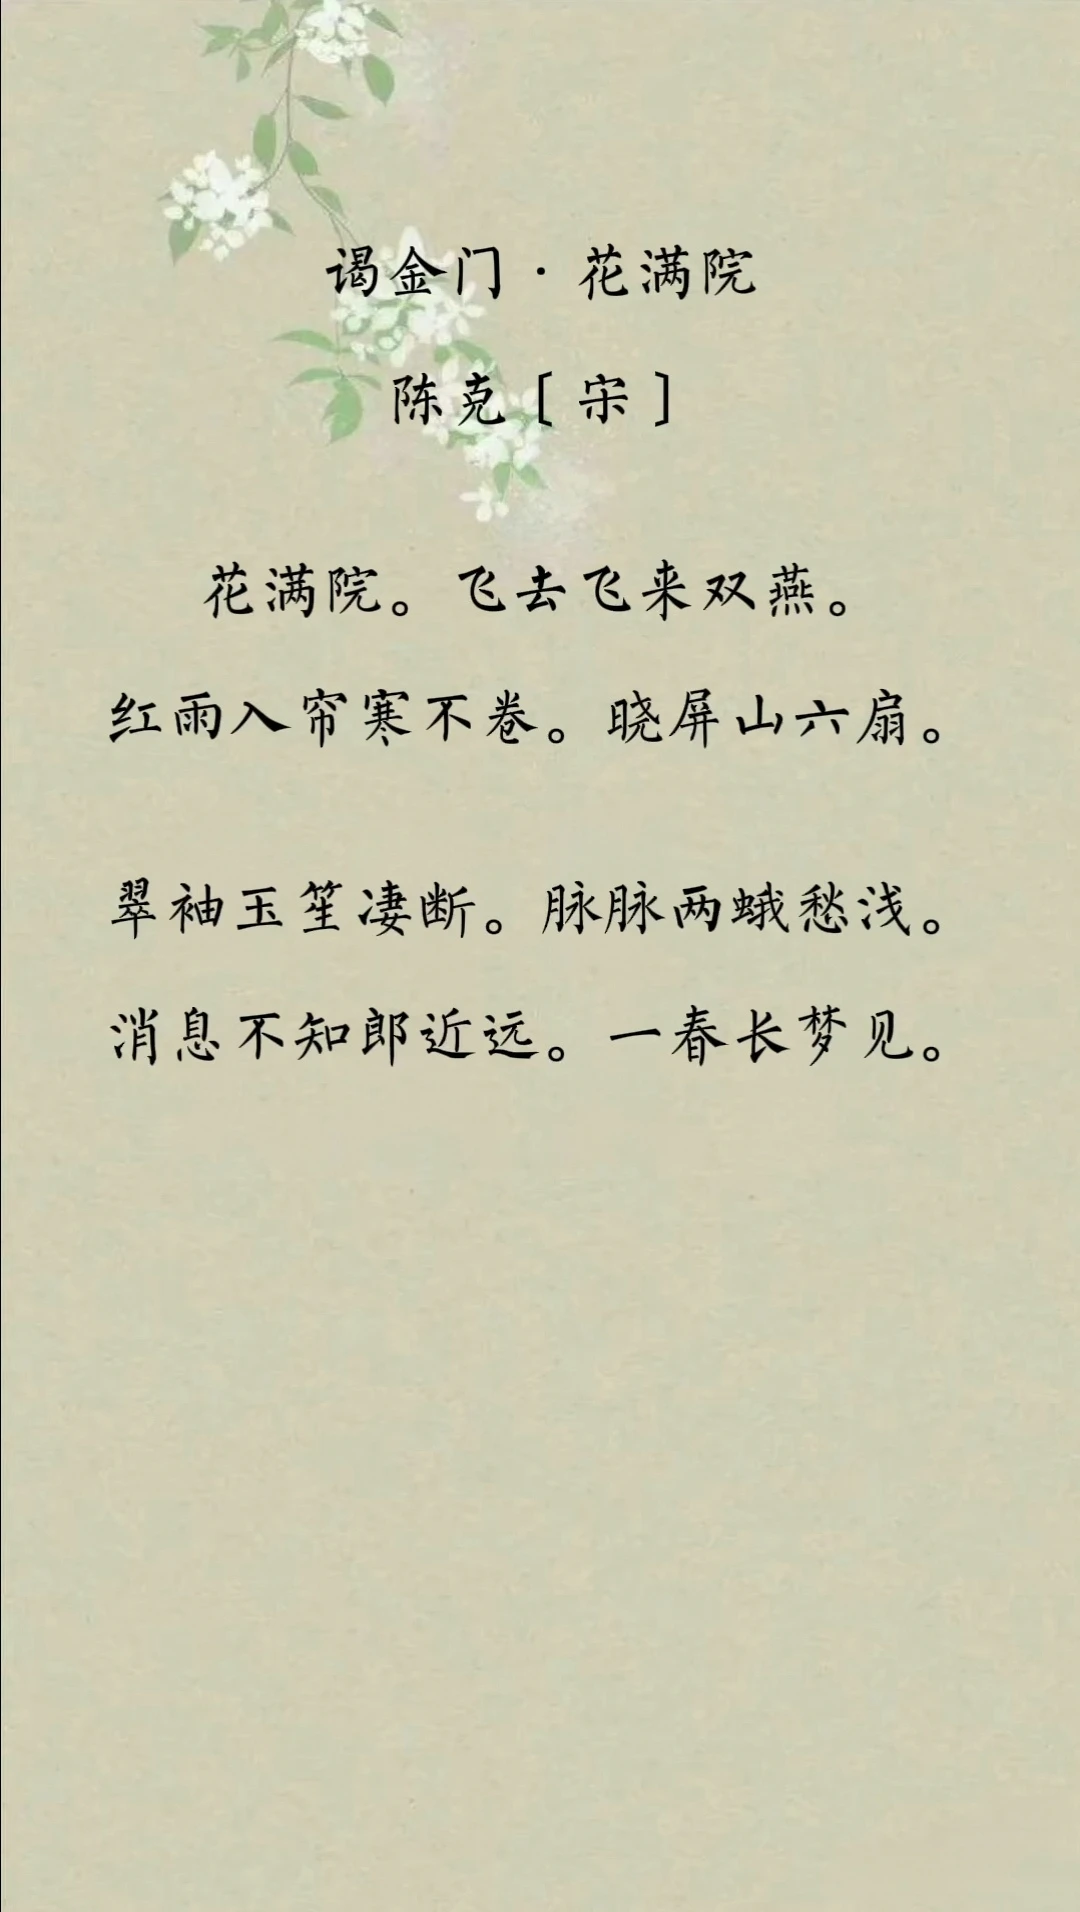 谒金门·花满院
陈克〔宋〕
花满院。飞去飞来双燕。
红雨入帘寒不卷。晓屏山六扇。
翠袖玉笙凄断。脉脉两蛾愁浅。
消息不知郎近远。一春长梦见。